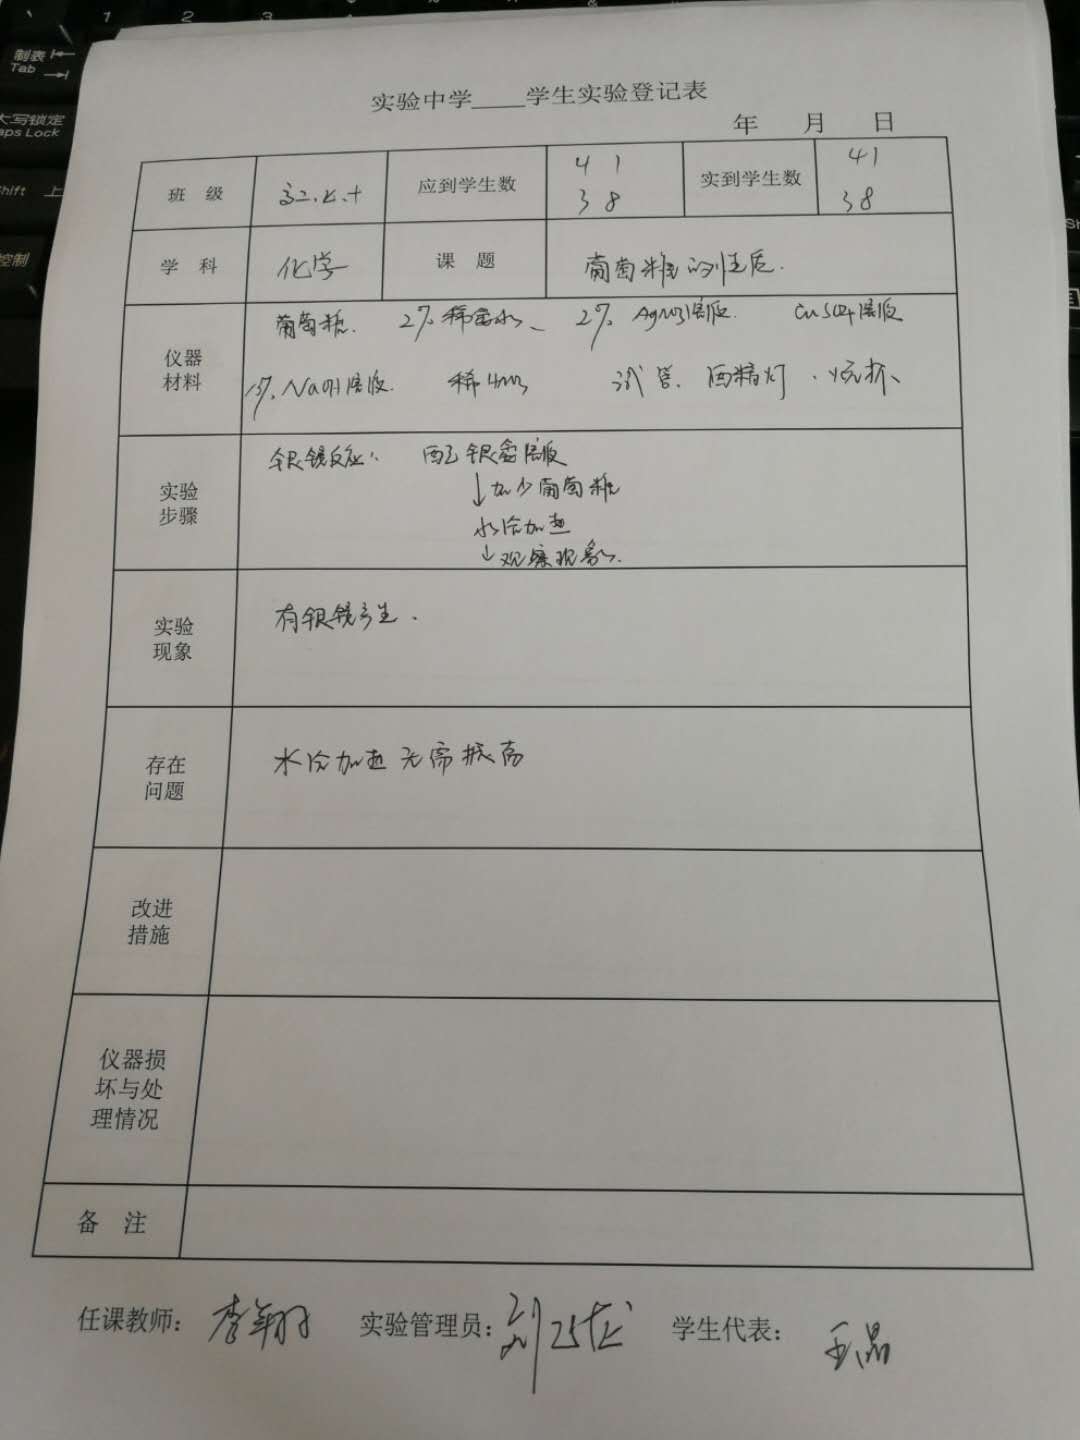 1 2 3
制表
Tab
大写锁定
aps Lock
hift 上
控制
实验中学____学生实验登记表
年 月 日
班 级 高二.七.十 应到学生数 41 实到学生数 41
38 38
学 科 化学 课 题 葡萄糖的性质.
仪器
材料
葡萄糖. 2%稀氨水、 2%. AgNO3溶液. CuSO4溶液
NaOH溶液. 试管、酒精灯、烧杯、
实验
步骤
银镜反应: 配己银氨溶液
↓加少葡萄糖
水浴加热
↓观察现象.
实验
现象
有银镜产生.
存在
问题
水浴加热无需振荡
改进
措施
仪器损
坏与处
理情况
备 注
任课教师: 李翔 实验管理员: 学生代表: 王晶